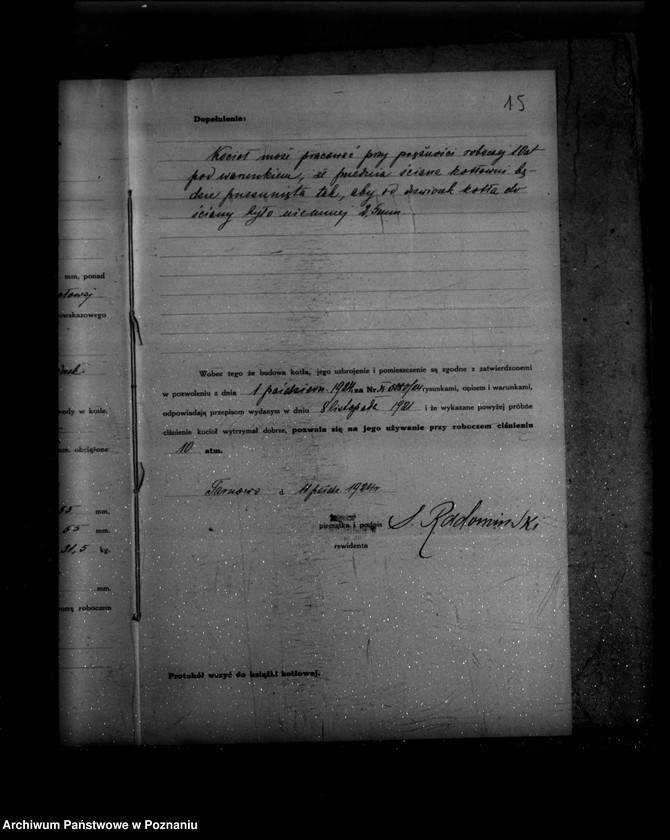 15
Dopełnienie:
Kocioł może pracować przy prężności roboczej 10 at
pod warunkiem, że przednia ściana kotłowni bę-
dzie przesunięta tak, aby od drzwiczek kotła do
ściany było niemniej 2,5
mm. ponad
owskazowego
wody w kotle.
mm. obciążone
mm.
65 mm.
31.5 kg.
mm.
roboczem
Wobec tego że budowa kotła, jego uzbrojenie i pomieszczenie są zgodne z zatwierdzonemi
w pozwoleniu z dnia 1 październ. 1924 za Nr. rysunkami, opisem i warunkami,
odpowiadają przepisom wydanym w dniu 8 listopada 1921 i że wykazane powyżej próbne
ciśnienie kocioł wytrzymał dobrze, pozwala się na jego używanie przy roboczem ciśnieniu
10 atm.
Tarnowo d 1924 r
pieczątka i podpis S. Radomiński
rewidenta
Protokół wszyć do książki kotłowej.
Archiwum Państwowe w Poznaniu